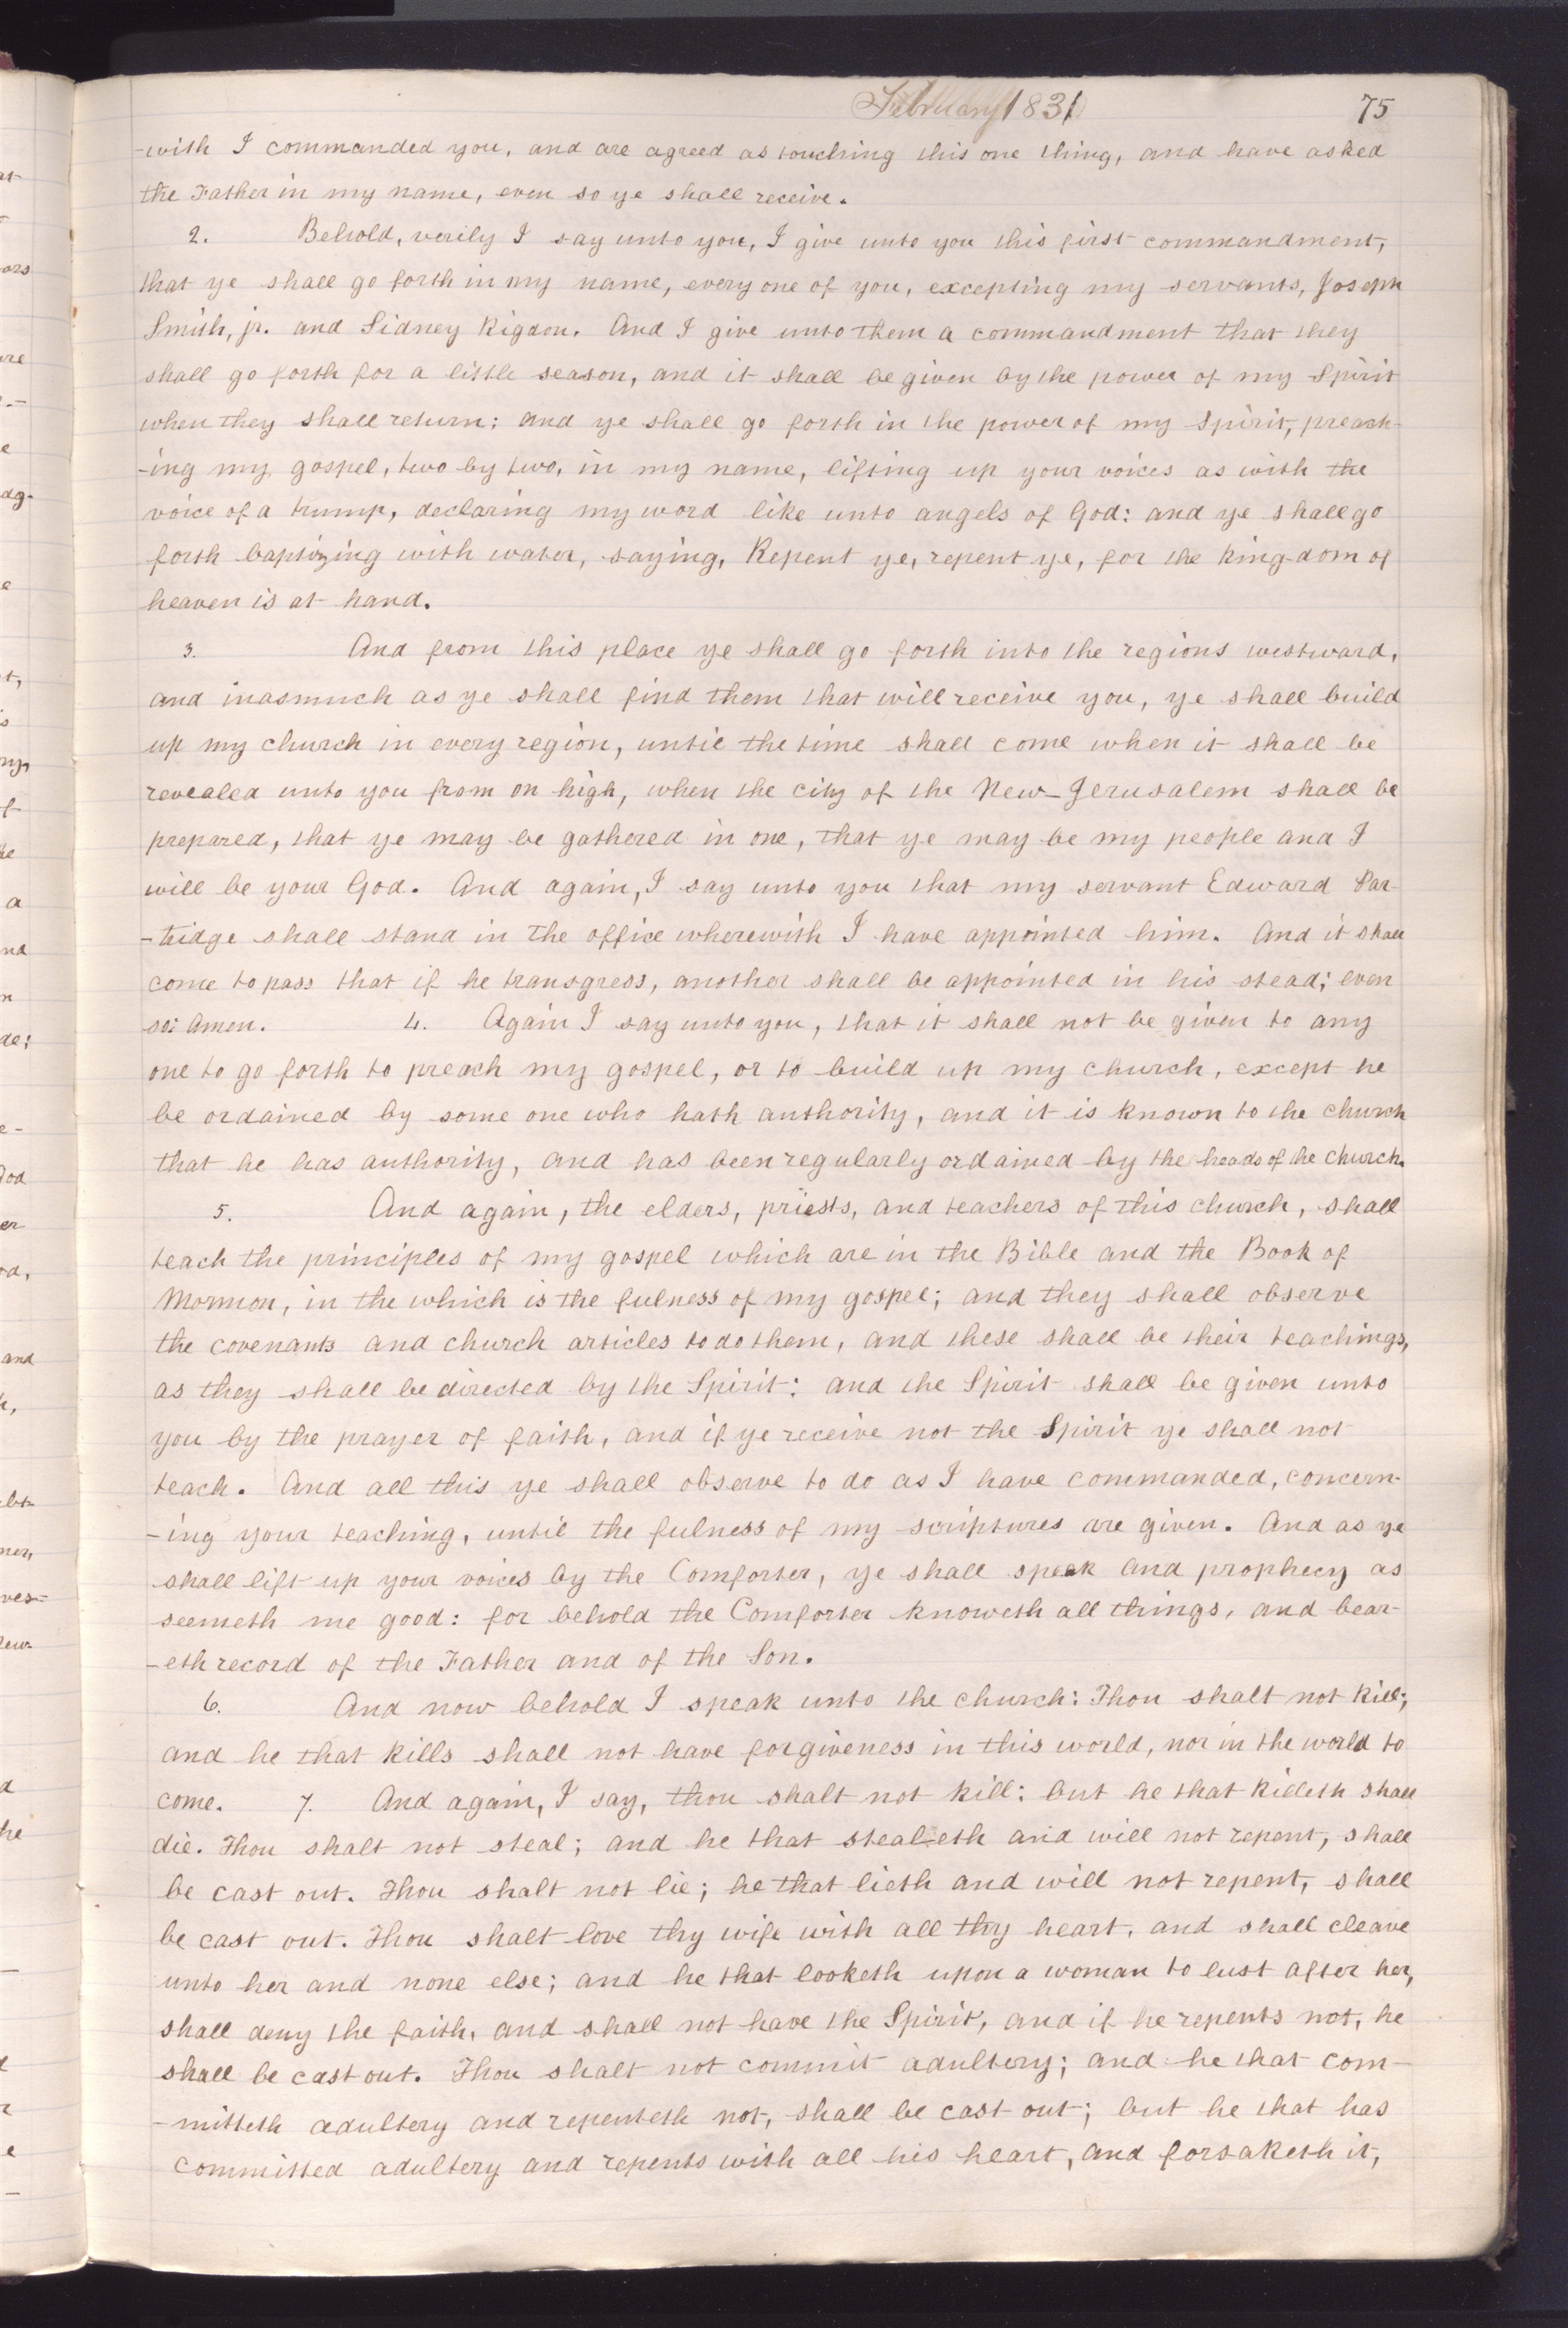 February 1831 75
-with I commanded you, and are agreed as touching this one thing, and have asked
the Father in my name, even so ye shall receive.
2. Behold, verily I say unto you, I give unto you this first commandment,
that ye shall go forth in my name, every one of you, excepting my servants, Joseph
Smith, jr. and Sidney Rigdon. And I give unto them a commandment that they
shall go forth for a little season, and it shall be given by the power of my Spirit
when they shall return: and ye shall go forth in the power of my Spirit, preach-
-ing my gospel, two by two, in my name, lifting up your voices as with the
voice of a trump, declaring my word like unto angels of God: and ye shall go
forth baptizing with water, saying, Repent ye, repent ye, for the kingdom of
heaven is at hand.
3. And from this place ye shall go forth into the regions westward,
and inasmuch as ye shall find them that will receive you, ye shall build
up my church in every region, until the time shall come when it shall be
revealed unto you from on high, when the city of the New-Jerusalem shall be
prepared, that ye may be gathered in one, that ye may be my people and I
will be your God. And again, I say unto you that my servant Edward Par-
-tridge shall stand in the office wherewith I have appointed him. And it shall
come to pass that if he transgress, another shall be appointed in his stead; even
so: Amen. 4. Again I say unto you, that it shall not be given to any
one to go forth to preach my gospel, or to build up my church, except he
be ordained by some one who hath authority, and it is known to the church
that he has authority, and has been regularly ordained by the heads of the church.
5. And again, the elders, priests, and teachers of this church, shall
teach the principles of my gospel which are in the Bible and the Book of
Mormon, in the which is the fulness of my gospel; and they shall observe
the covenants and church articles to do them, and these shall be their teachings,
as they shall be directed by the Spirit: and the Spirit shall be given unto
you by the prayer of faith, and if ye receive not the Spirit ye shall not
teach. And all this ye shall observe to do as I have commanded, concern-
-ing your teaching, until the fulness of my scriptures are given. And as ye
shall lift up your voices by the Comforter, ye shall speak and prophecy as
seemeth me good: for behold the Comforter knoweth all things, and bear-
-eth record of the Father and of the Son.
6. And now behold I speak unto the church: Thou shalt not kill;
and he that kills shall not have forgiveness in this world, nor in the world to
come. 7. And again, I say, thou shalt not kill: but he that killeth shall
die. Thou shalt not steal; and he that stealeth and will not repent, shall
be cast out. Thou shalt not lie; he that lieth and will not repent, shall
be cast out. Thou shalt love thy wife with all thy heart, and shall cleave
unto her and none else; and he that looketh upon a woman to lust after her,
shall deny the faith, and shall not have the Spirit, and if he repents not, he
shall be cast out. Thou shalt not commit adultery; and he that com-
-mitteth adultery and repenteth not, shall be cast out; but he that has
committed adultery and repents with all his heart, and forsaketh it,